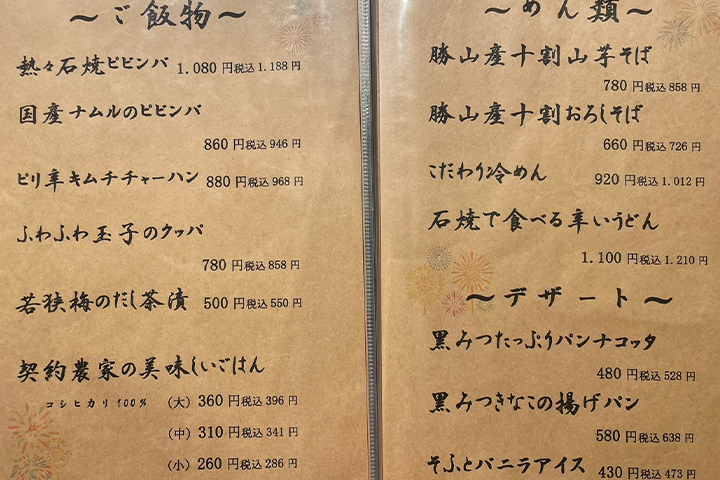 ～ご飯物～
熱々石焼ビビンバ 1.080円税込1.188円
国産ナムルのビビンバ
860円税込946円
ピリ辛キムチチャーハン 880円税込968円
ふわふわ玉子のクッパ
780円税込858円
若狭梅のだし茶漬 500円税込550円
契約農家の美味しいごはん
コシヒカリ100% (大) 360円税込396円
(中) 310円税込341円
(小) 260円税込286円
～めん類～
勝山産十割山芋そば
780円税込858円
勝山産十割おろしそば
660円税込726円
こだわり冷めん 920円税込1.012円
石焼で食べる辛いうどん
1.100円税込1.210円
～デザート～
黒みつたっぷりパンナコッタ
480円税込528円
黒みつきなこの揚げパン
580円税込638円
そふとバニラアイス 430円税込473円